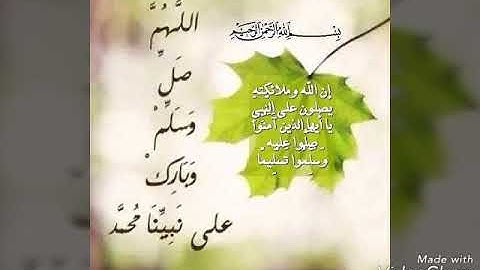 بِسْمِ اللهِ الرَّحْمٰنِ الرَّحِيمِ
اللَّهُمَّ
صَلِّ
وَسَلِّمْ
وَبَارِكْ
على نَبِيِّنَا مُحمَّد
إن الله وملائكته
يصلون على النبي
يا أيها الذين آمنوا
صلوا عليه
وسلموا تسليما
Made with